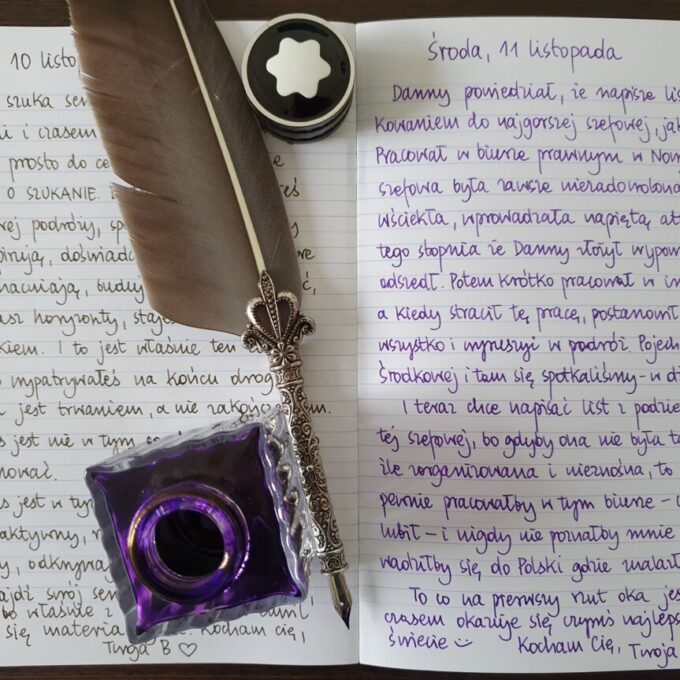 10 listop
szuka sen
i i czasem
prosto do ce
O SZUKANIE.
ej podróży, sp
pirują, doświadc
naczniają, budu
asz horyzonty, staj
kiem. I to jest właśnie ten
wypatrywałeś na końcu drog
jest trwaniem, a nie zakończ em.
s jest nie w tym
nować.
s jest w ty
aktywny, r
y, odkryw
ajdź swój sen
właśnie z
się materia Kocham cię,
Twoja B ♡
Środa, 11 listopada
Danny powiedział, że napisze lis
kowaniem do najgorszej szefowej, jak
Pracował w biurze prawnym w Now
szefowa była zawsze niezadowolona
wściekła, wprowadzała napiętą at
tego stopnia że Danny złożył wypow
odszedł. Potem krótko pracował w in
a kiedy stracił tę pracę, postanowił
wszystko i wyruszył w podróż. Pojech
Środkowej i tam się spotkaliśmy - w d
I teraz chce napisać list z podzię
tej szefowej, bo gdyby ona nie była ta
źle zorganizowana i nieznośna, to
pewnie pracowałby w tym biurze -
lubił - i nigdy nie poznałby mnie
wadziłby się do Polski gdzie znalazł
To co na pierwszy rzut oka jes
czasem okazuje się czymś najleps
świecie ☺ Kocham Cię, Twoja